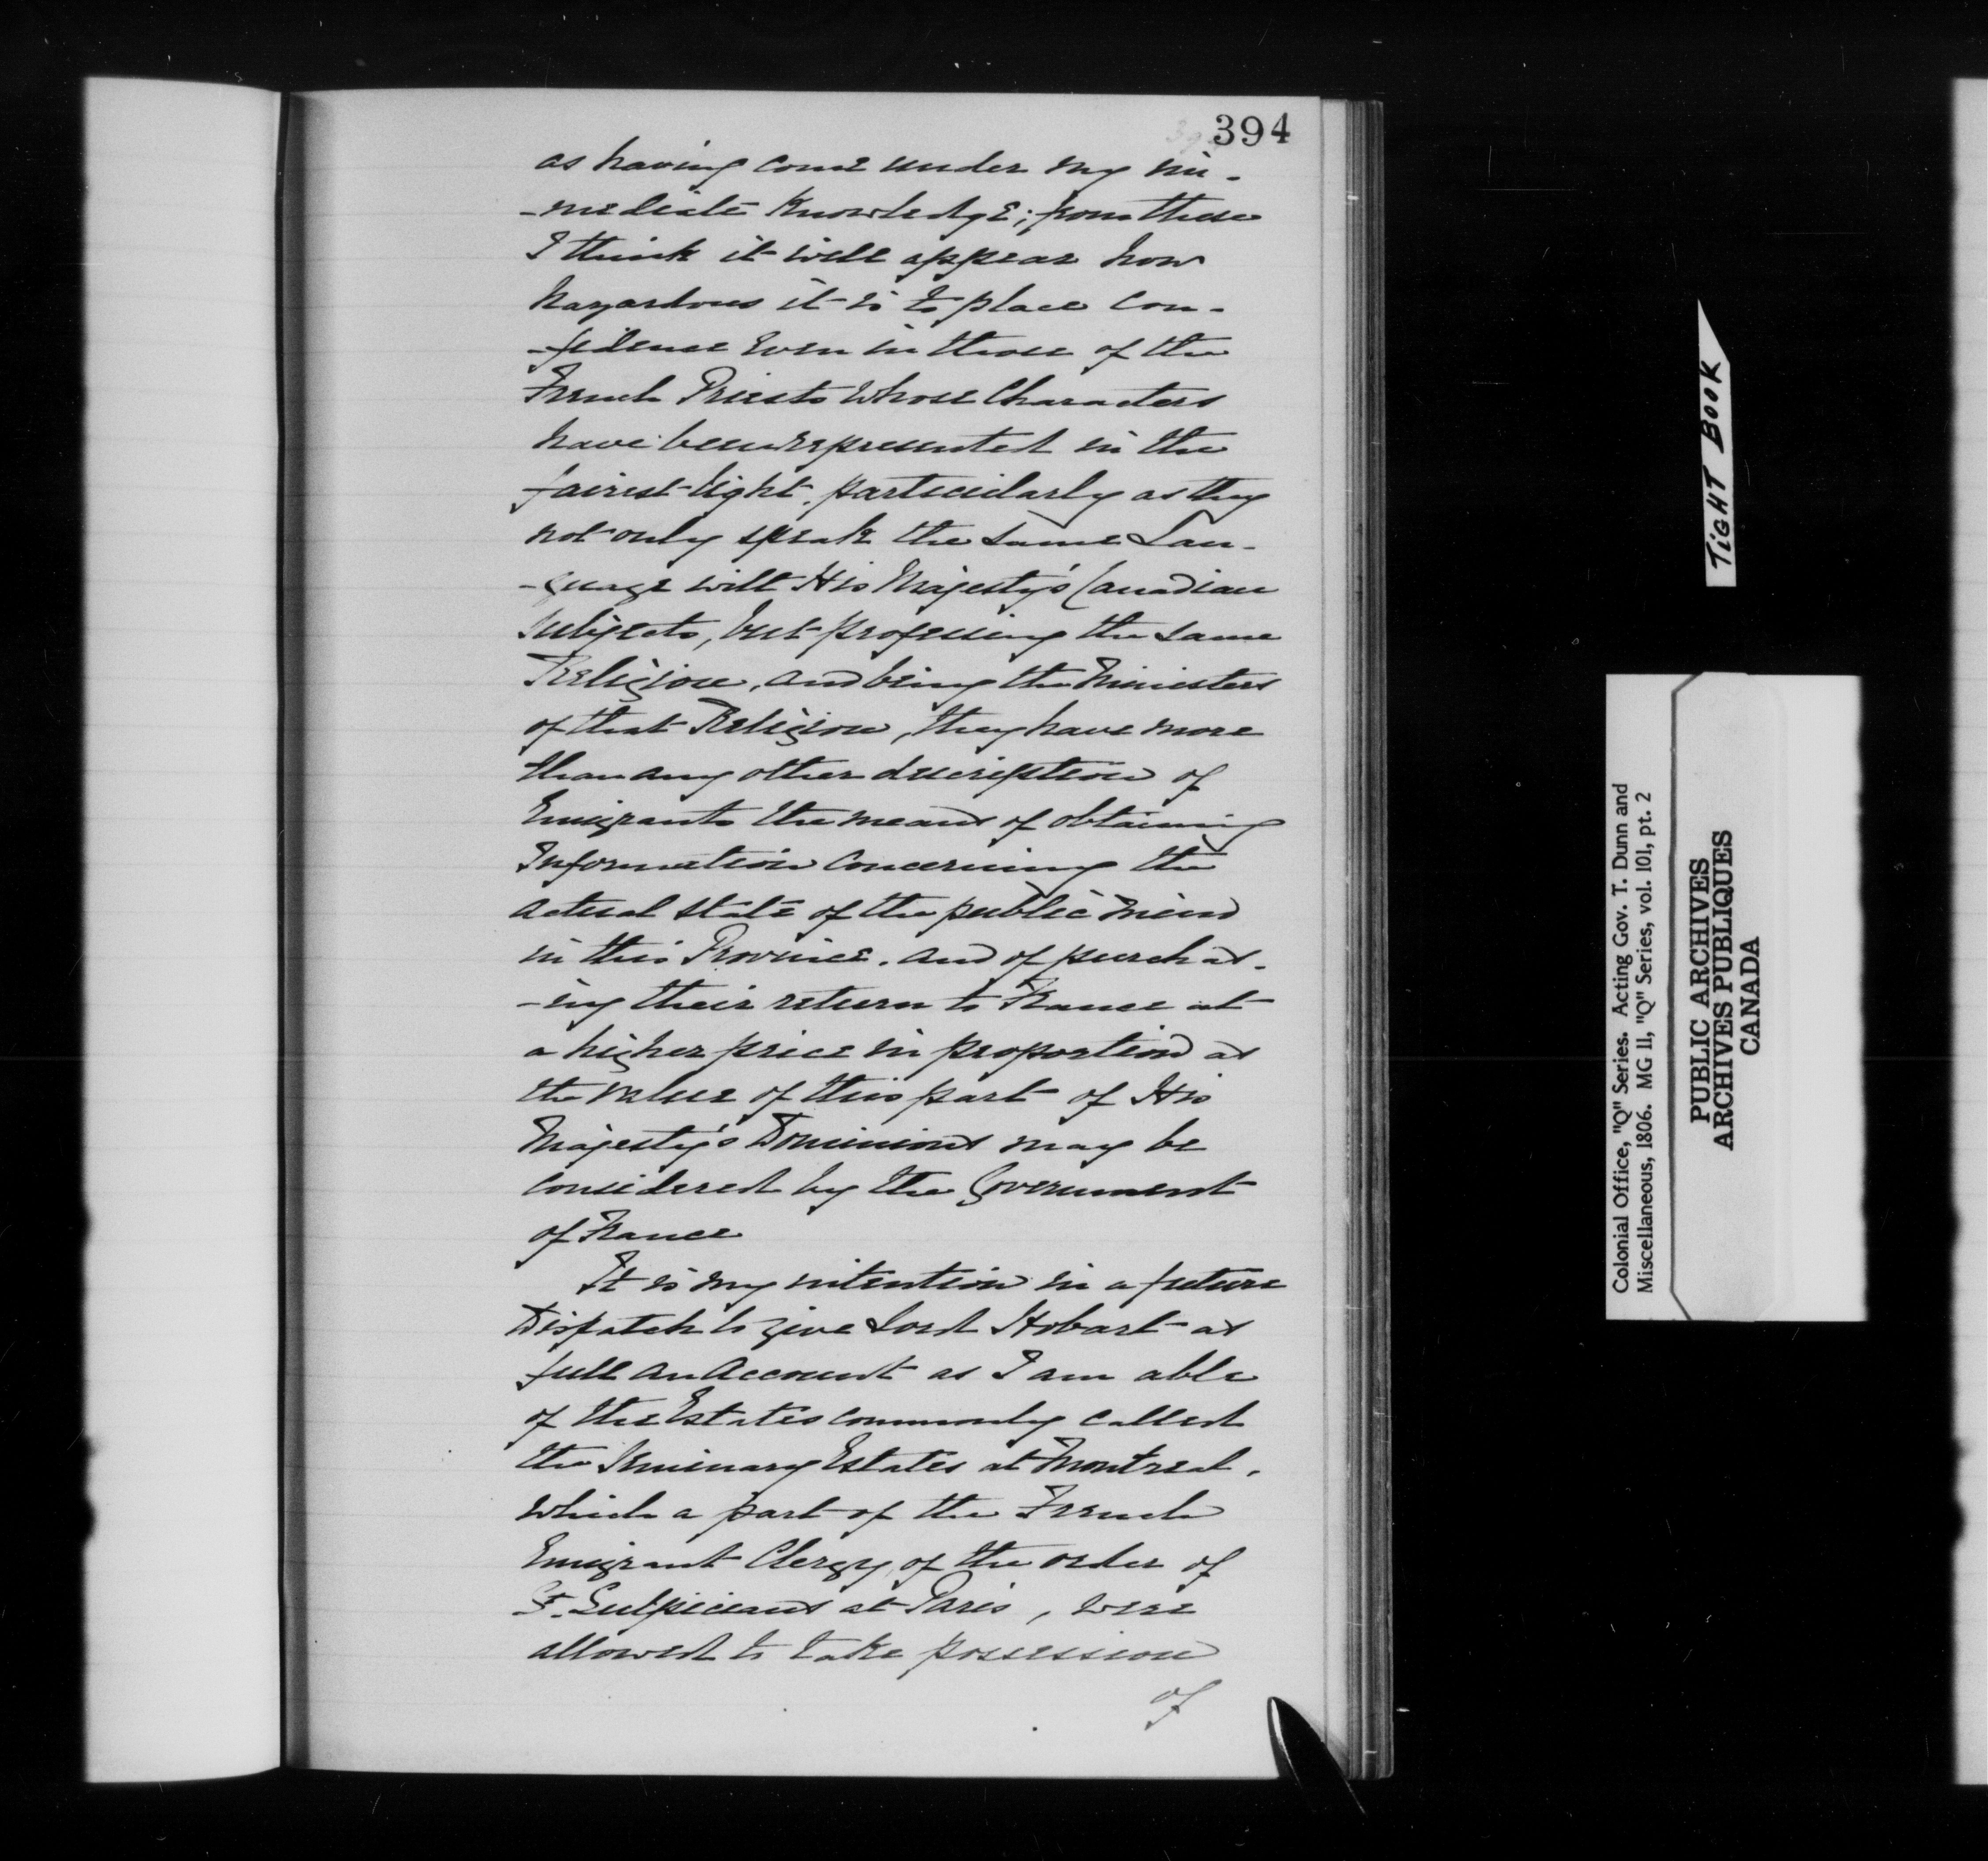 394
as having come under my im-
-mediate Knowledge; from these
I think it will appear how
hazardous it is to place con-
-fidence Even in those of the
French Priests Whose Characters
have been represented in the
fairest light, particularly as they
not only speak the same Lan-
-guage with His Majesty's Canadian
Subjects, but professing the same
Religion, and being the Ministers
of that Religion, they have more
than any other description of
Emigrants the means of obtaining
Information Concerning the
actual state of the public mind
in this Province, and of purchas-
-ing their return to France at
a higher price in proportion as
the value of this part of His
Majesty's Dominions may be
Considered by the Government
of France
It is my intention in a future
Dispatch to give Lord Hobart as
full an Account as I am able
of the Estates commonly called
the Seminary Estates at Montreal,
which a part of the French
Emigrant Clergy, of the order of
St. Sulpicians at Paris, were
allowed to take possession
of
TIGHT BOOK
Colonial Office, "Q" Series. Acting Gov. T. Dunn and
Miscellaneous, 1806. MG 11, "Q" Series, vol. 101, pt. 2
PUBLIC ARCHIVES
ARCHIVES PUBLIQUES
CANADA